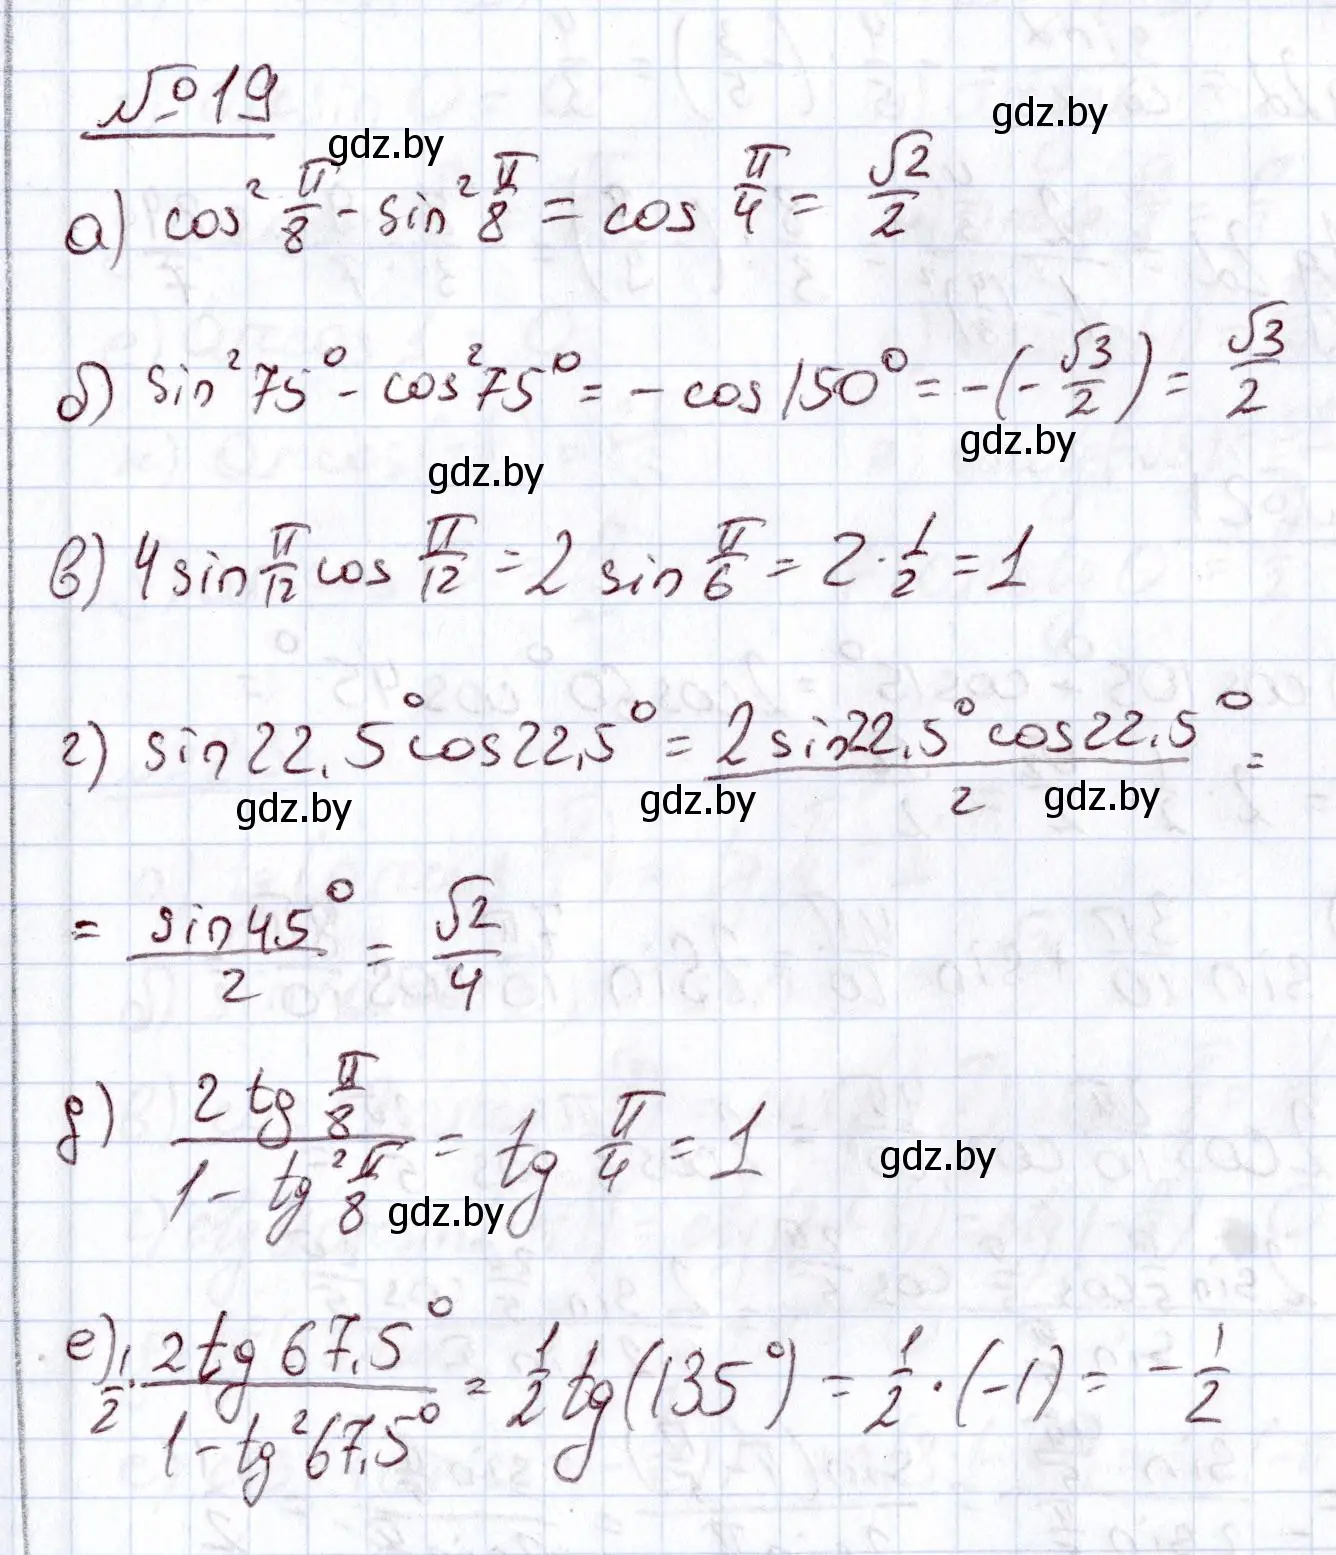 №19
gdz.by
gdz.by
а) cos² π/8 - sin² π/8 = cos π/4 = √2/2
б) sin² 75° - cos² 75° = - cos 150° = -(-√3/2) = √3/2
gdz.by
gdz.by
в) 4 sin π/12 cos π/12 = 2 sin π/6 = 2 · 1/2 = 1
г) sin 22,5° cos 22,5° = 2 sin 22,5° cos 22,5° / 2 =
gdz.by
gdz.by
gdz.by
= sin 45° / 2 = √2/4
д) 2 tg π/8 / 1 - tg² π/8 = tg π/4 = 1
gdz.by
gdz.by
е) 1/2 · 2 tg 67,5° / 1 - tg² 67,5° = 1/2 tg (135°) = 1/2 · (-1) = - 1/2